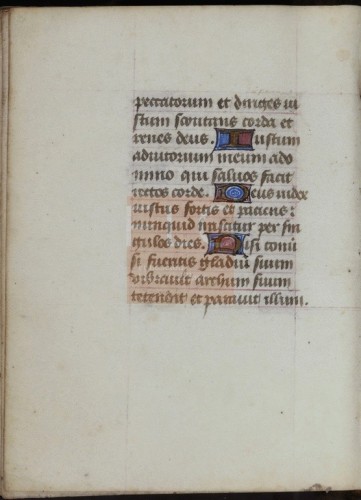 peccatorum et diriges iu
stum scrutans corda et
renes deus. Iustum
adiutorium meum a do
mino qui saluos facit
rectos corde. Deus iudex
iustus fortis et paciens:
nunquid irascitur per sin
gulos dies. Nisi conu
si fueritis gladiū suum
vibrauit archum suum
tetendit et parauit illum.